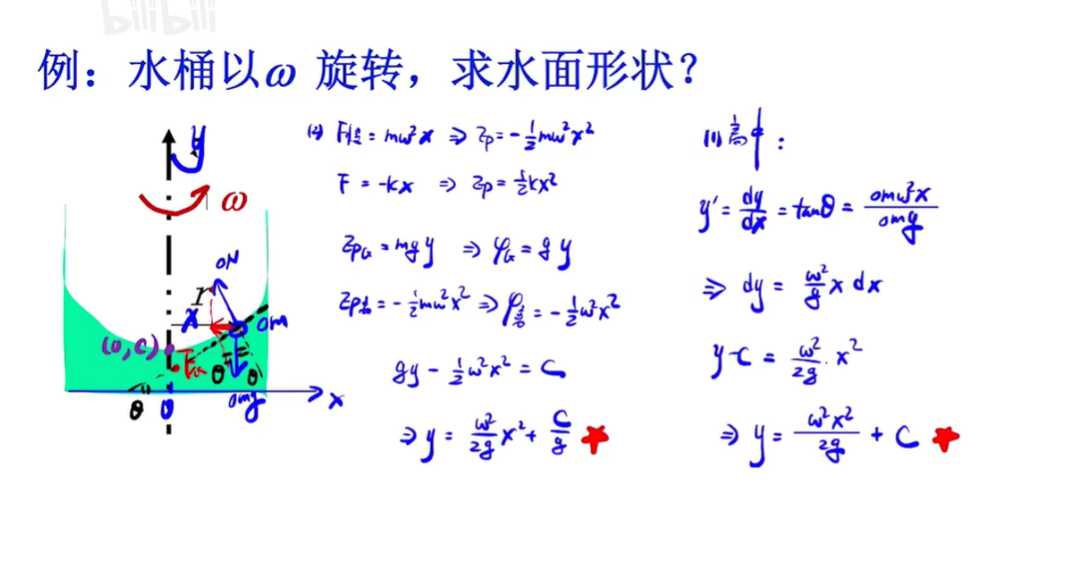 bilibili
例：水桶以ω 旋转，求水面形状？
y
ω
ΔN
r
x
Δm
(0, C)
F合
θ θ
θ 0 Δmg x
(2) F惯 = mω²x ⇒ Ep = -1/2 mω²x²
F = -kx ⇒ Ep = 1/2 kx²
EpG = mgy ⇒ φG = gy
Ep离 = -1/2 mω²x² ⇒ φ离 = -1/2 ω²x²
gy - 1/2 ω²x² = C
⇒ y = ω²/2g x² + C/g
(1) 高中：
y' = dy/dx = tanθ = Δmω²x/Δmg
⇒ dy = ω²/g x dx
y-C = ω²/2g · x²
⇒ y = ω²x²/2g + C